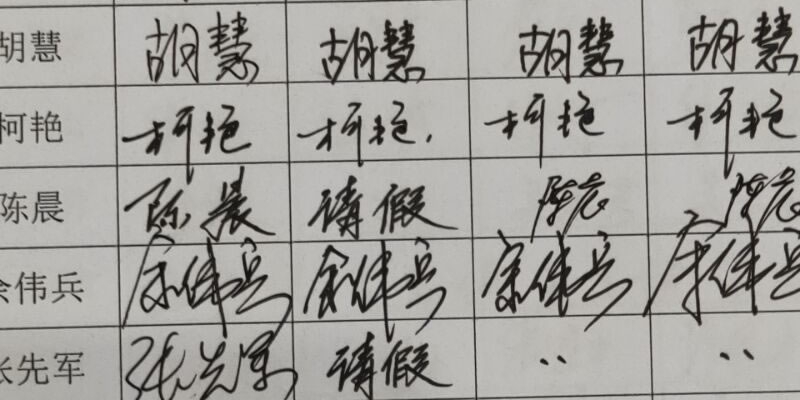 胡慧 胡慧 胡慧 胡慧 胡慧
柯艳 柯艳 柯艳. 柯艳 柯艳
陈晨 陈晨 请假 陈晨 陈晨
余伟兵 余伟兵 余伟兵 余伟兵 余伟兵
张先军 张先军 请假 ·· ··